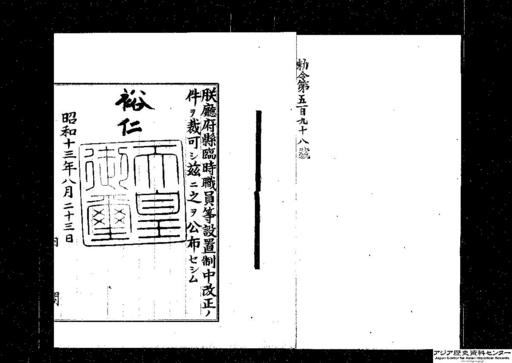 勅令第五百九十八號
朕廳府縣臨時職員等設置制中改正ノ
件ヲ裁可シ茲ニ之ヲ公布セシム
裕仁
天皇御璽
昭和十三年八月二十三日
内閣
アジア歴史資料センター
Japan Center for Asian Historical Records